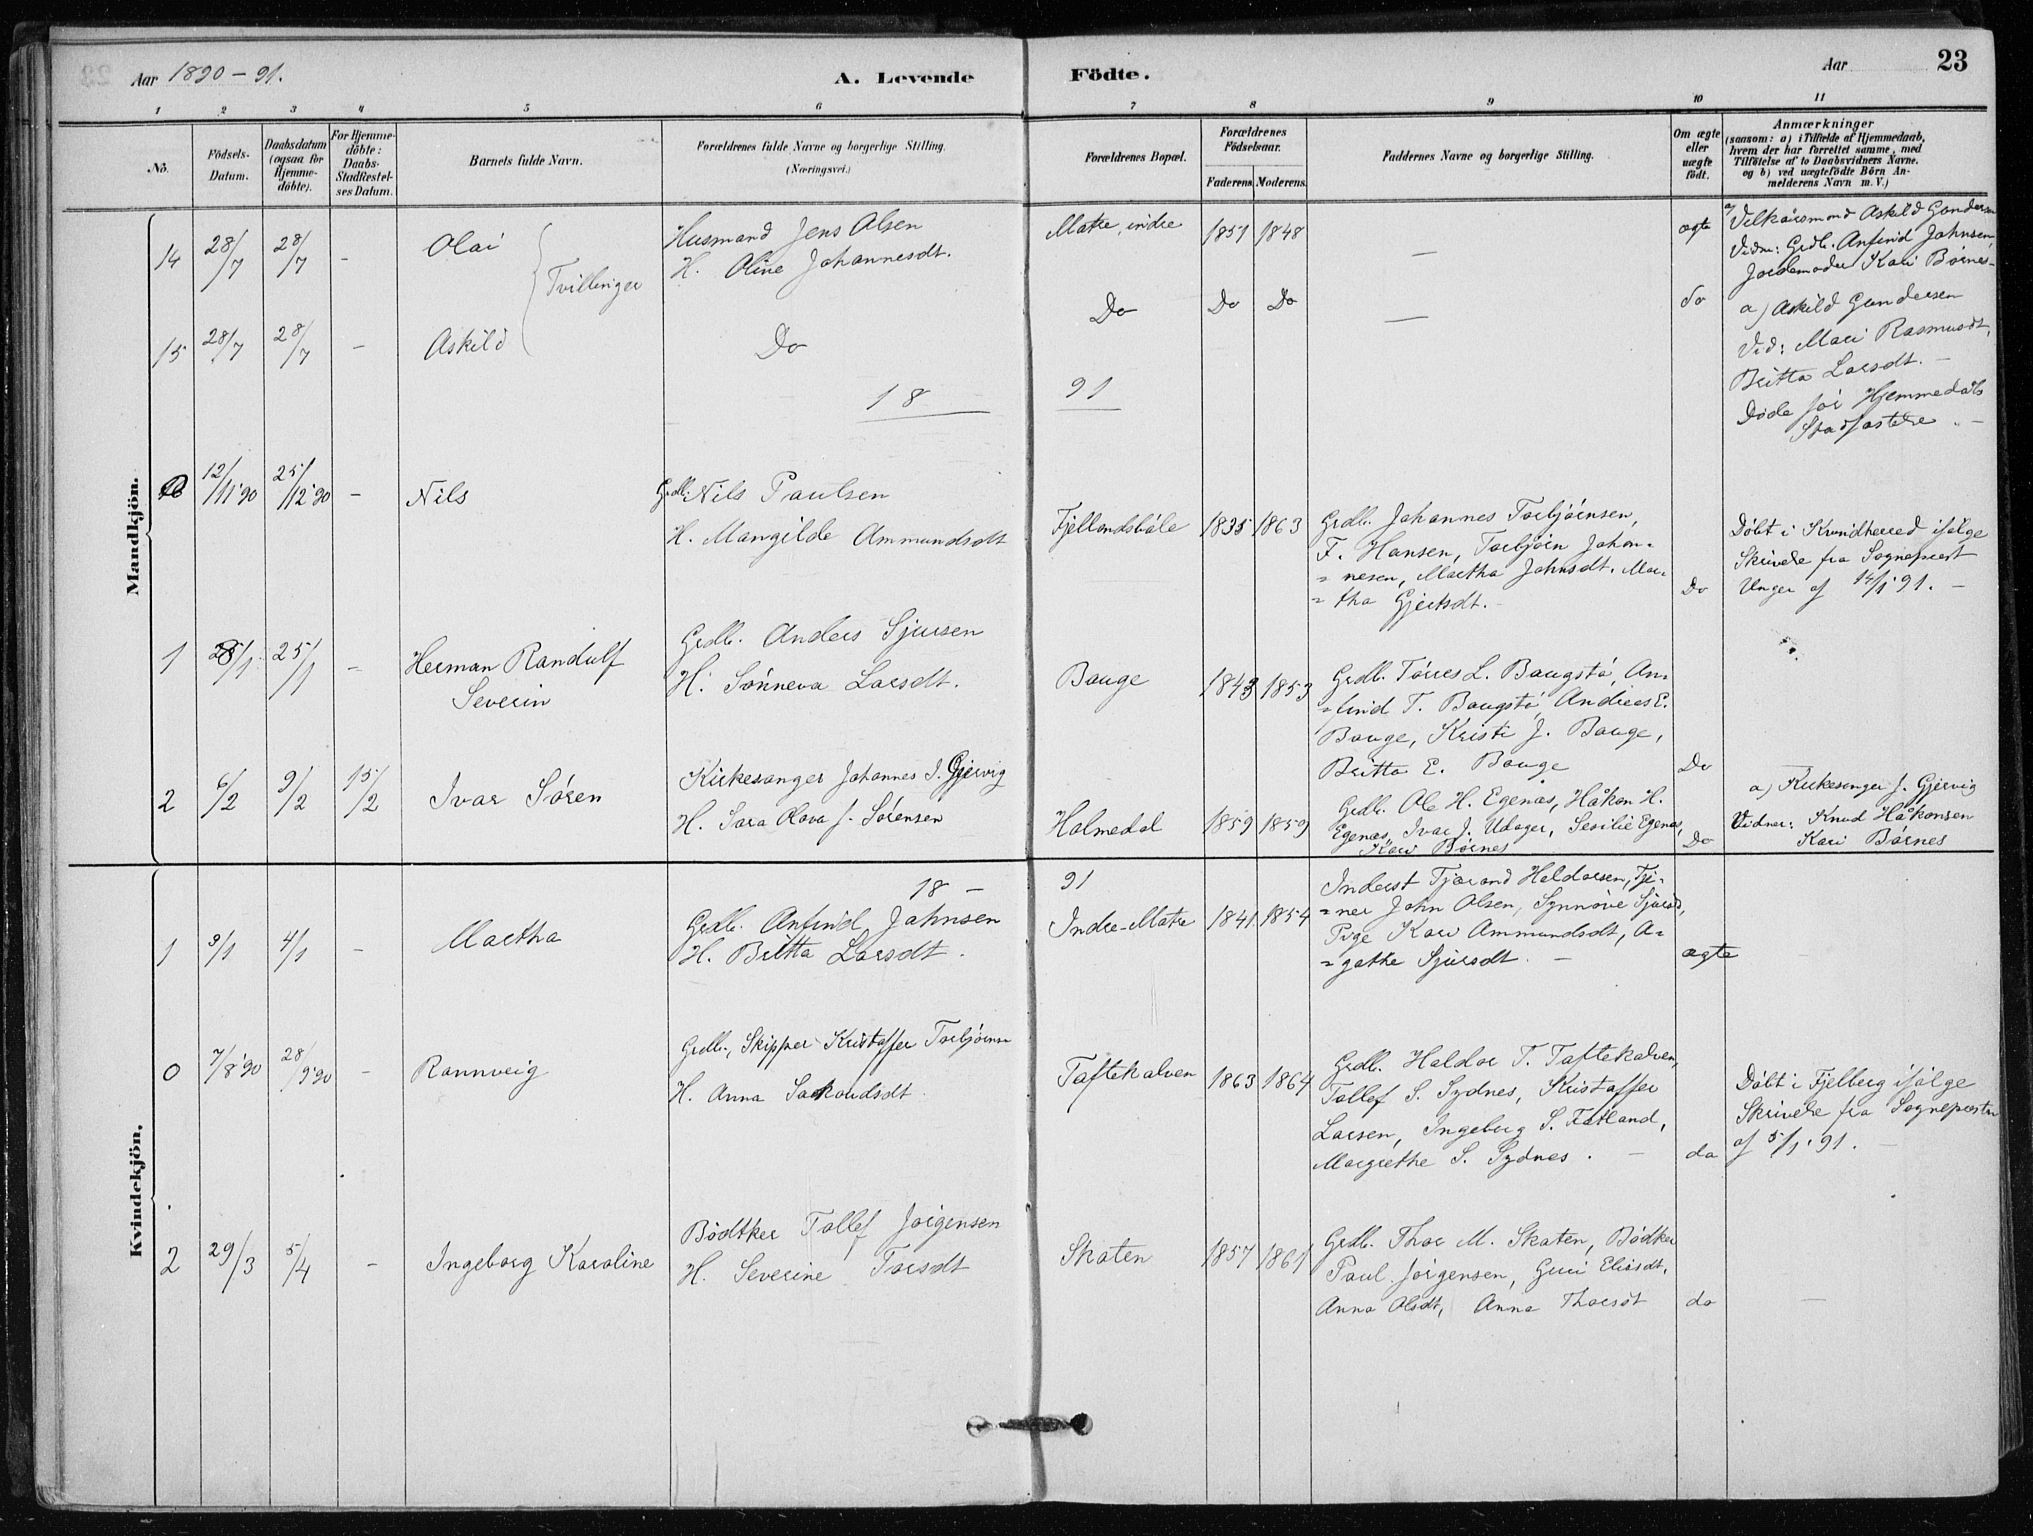 Aar 1890 – 91.
A. Levende Födte.
Aar
23
1 2 3 4 5 6 7 8 9 10 11
No.
Födsels-Datum.
Daabsdatum (ogsaa for Hjemme-döbte).
For Hjemme-döbte: Daabs-Stadfæstel-ses Datum.
Barnets fulde Navn.
Forældrenes fulde Navne og borgerlige Stilling. (Næringsvei.)
Forældrenes Bopæl.
Forældrenes Födselsaar.
Faderens Moderens.
Faddernes Navne og borgerlige Stilling.
Om ægte eller uægte födt.
Anmærkninger
(saasom: a) i Tilfælde af Hjemmedaab, hvem der har forrettet samme, med Tilföielse af to Daabsvidners Navne. og b) ved uægtefödte Börn An-melderens Navn m. V.)
Mandkjön.
14 28/7 28/7 - Olai
Tvillinger
Husmand Jens Olsen
H. Oline Johannesdt.
Matre, indre 1851 1848 — ægte
a) Vilkårsmand Askild Gundersen
Vidn: Grdb. Anfind Johnsen,
Jordemoder Kari Børnes-
15 28/7 28/7 - Askild
Do
Do Do Do — do
a) Askild Gundersen
Vid: Mari Rasmusdt,
Britta Larsdt. –
Døde før Hjemmedåbs
Stadfæstelse
18 91
12/11 90 25/12 90 - Nils
Grdb. Nils Paulsen
H. Mangilde Ammundsdt
Fjellandsbøle 1835 1863
Grdb. Johannes Torbjörnsen,
F. Hansen, Torbjörn Johan=
=nesen, Martha Johnsdt. Mar=
=tha Gjertsdt. Do
Döbt i Kvindherred ifølge
Skrivelse fra Sogneprest
Unger af 14/1 91. –
1 25/1 - Herman Randulf
Severin
Grdb. Anders Sjursen
H. Sønneva Larsdt.
Bauge 1843 1853
Grdb. Tørres L. Baugstø, An=
=find T. Baugstø, Andreas E.
Bauge, Kristi J. Bauge,
Britta E. Bauge Do
2 6/2 9/2 15/2 Ivar Søren
Kirkesanger Johannes I. Gjervig
H. Sara Olava J. Sørensen
Holmedal 1859 1859
Grdb. Ole H. Egenæs, Håkon H.
Egenæs, Ivar J. Udager, Sesilie Egenæs,
Kari Børnes Do
a) Kirkesanger J. Gjervig
Vidner: Knud Håkonsen
Kari Børnes
Kvindekjön.
18 – 91
1 3/1 4/1 - Martha
Grdb. Anfind Johnsen
H. Britta Larsdt.
Indre-Matre 1841 1854
Inderst Tjærand Haldorsen, Tje=
=ner John Olsen, Synnöve Sjursd,
Pige Kari Ammundsdt, A=
=gathe Sjursdt. – ægte
0 7/8 90 28/9 90 - Rannveig
Grdb., Skipper Kristoffer Torbjörnsn
H. Anna
Toftekalven 1863 1864
Grdb. Haldor T. Toftekalven,
Tollef S. Sydnes, Kristoffer
Larsen, Ingeborg S. Fatland,
Margrethe S. Sydnes. – do
Döbt i Fjelberg ifølge
Skrivelse fra Sognepresten
af 5/1 91.
2 29/3 5/4 - Ingeborg Karoline
Bödtker Tollef Jörgensen
H. Severine Torsdt
Skaten 1857 1861
Grdb. Thor M. Skaten, Bödtker
Paul Jörgensen, Guri Eliasdt,
Anna Olsdt, Anna Thorsdt do